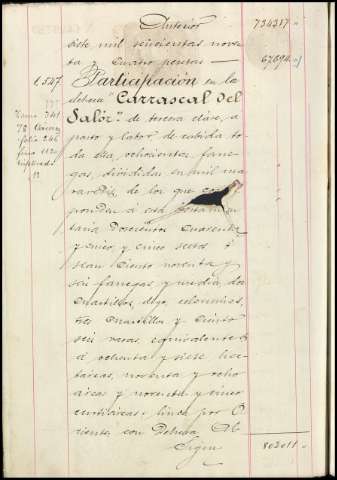 Anterior 734317 "
siete mil seiscientas noven
ta y cuatro pesetas — 67694 "
1,547 Participación en la
dehesa "Carrascal del
Salór" de tercera clase, a
pasto y labor de cabida to
da ella, ochocientas fane
gas, divididas en mil ma
ravedis, de los que corres
ponden á esta
taria Doscientos cuarenta
y cinco, y cinco sextos ó
sean ciento noventa y
seis fanegas, y media, dos
cuartillos, digo, celemines,
tres cuartillos y ciento
seis varas, equivalentes
á ochenta y siete hec
tareas, noventa y ocho
áreas y noventa y cinco
centiáreas; linda por O
riente, con Dehesa
Sigue 802011 "
Tomo 741
78 Caceres
folio 246
finca 1120